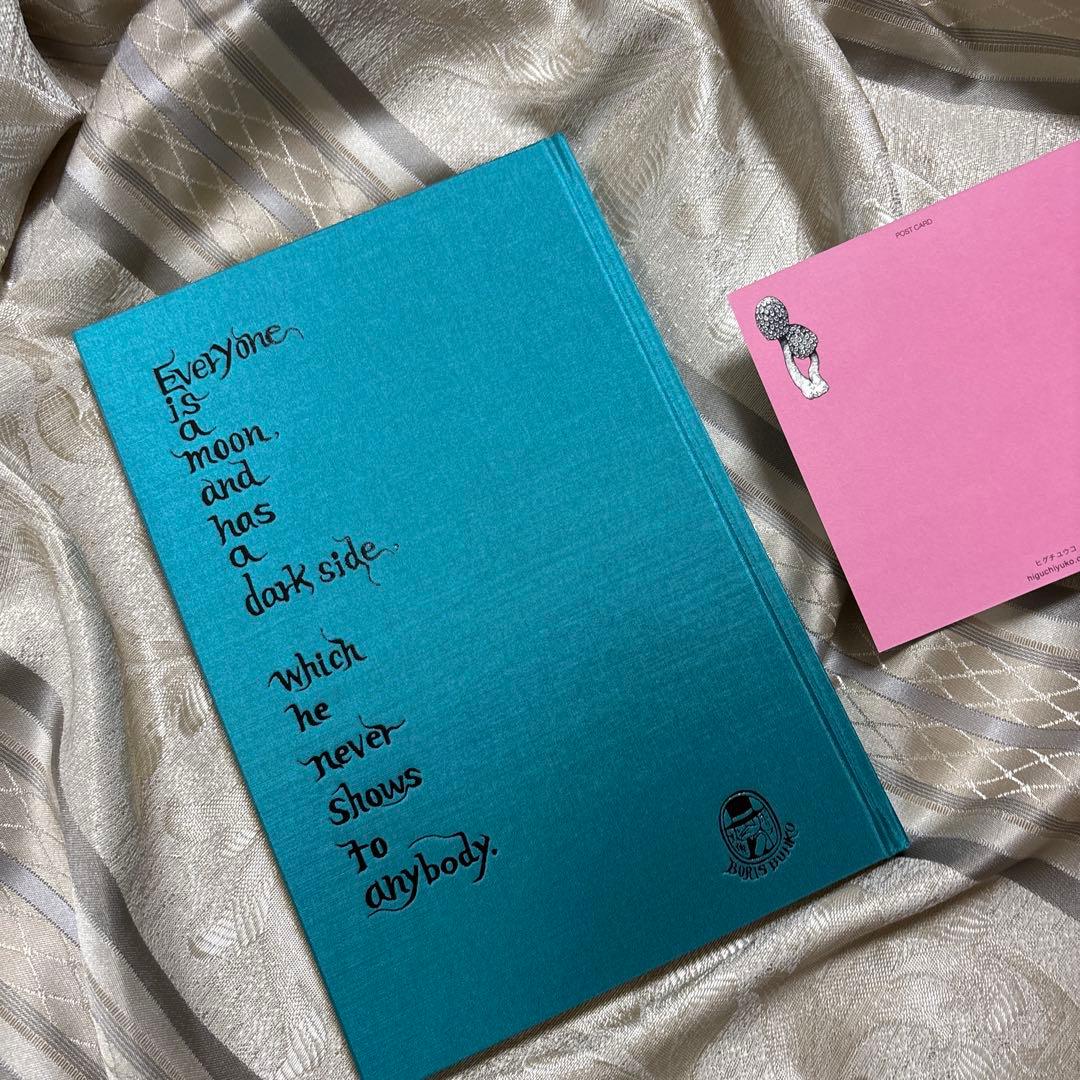 Everyone
is
a
moon,
and
has
a
dark side
which
he
never
shows
to
anybody.
BORIS BUNKO
POST CARD
ヒグチユウコ
higuchiyuko.c